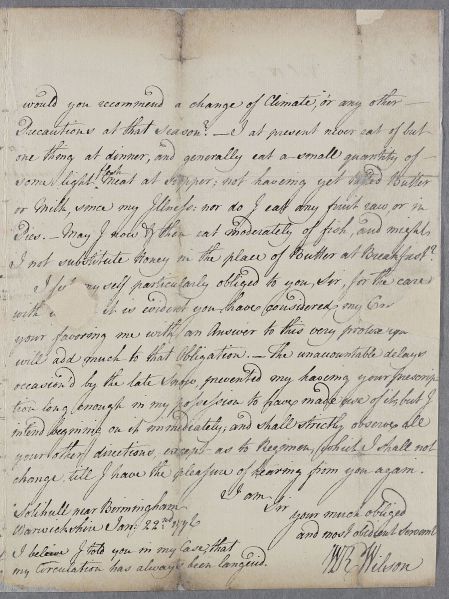 would you recommend a change of Climate, or any other —
Precautions at that Season? — I at present never eat of but
one thing at dinner, and generally eat a small quantity of —
some light fresh meat at Supper; not having yet Butter
or Milk, since my Illness: nor do I eat any fruit raw or in
Pies. — May I now & then eat moderately of fish, and might
I not substitute Honey in the place of Butter at Breakfast?
I myself particularly obliged to you, Sir, for the care
with it is evident you have considered my
your favoring me with an Answer to this very prolix
will add much to that Obligation. — The unaccountable delays
occasion'd by the late Snow, prevented my having your Prescrip-
tion long enough in my possession to have made use of it, but I
intend beginning on it immediately; and shall strictly observe all
your other directions, except as to Regimen, which I shall not
change till I have the pleasure of hearing from you again.
I am Sir
Solihull near Bermingham your much obliged
Warwickshire Jan: 22nd and most obedient Servant
I believe I told you in my Case, that Wilson
my Circulation has always been languid.